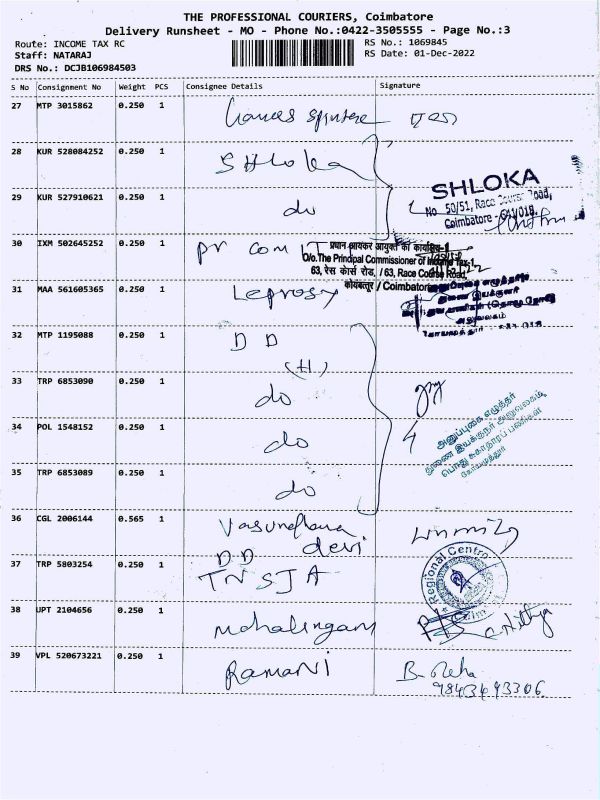 THE PROFESSIONAL COURIERS, Coimbatore
Delivery Runsheet - MO - Phone No.:0422-3505555 - Page No.:3
Route: INCOME TAX RC
RS No.: 1069845
Staff: NATARAJ
RS Date: 01-Dec-2022
DRS No.: DCJB106984503
S No Consignment No Weight PCS Consignee Details Signature
27 MTP 3015862 0.250 1
28 KUR 528084252 0.250 1 SHloka
SHLOKA
No 50/51, Race Course Road,
Coimbatore - 641018.
29 KUR 527910621 0.250 1 do
30 IXM 502645252 0.250 1 Pr Com IT
प्रधान आयकर आयुक्त का कार्यालय-1
O/o.The Prinicpal Commissioner of Income Tax-1,
63, रेस कोर्स रोड, / 63, Race Course Road,
कोयंबत्तूर / Coimbatore
31 MAA 561605365 0.250 1 Leprosy
அனுப்புகை எழுத்தர்
துணை இயக்குனர்
அலுவலகம்
32 MTP 1195088 0.250 1 D D
(H)
33 TRP 6853090 0.250 1 do
34 POL 1548152 0.250 1 do
அனுப்புகை எழுத்தர்
துணை இயக்குநர் அலுவலகம்,
பொது சுகாதாரப் பணிகள்
கோயமுத்தூர்
35 TRP 6853089 0.250 1 do
36 CGL 2006144 0.565 1 Vasundhara
devi
37 TRP 5803254 0.250 1 D.D
TNSJA
Regional Centre
38 UPT 2104656 0.250 1 Mahalingam
39 VPL 520673221 0.250 1 Ramani
B. Reha
9843693306